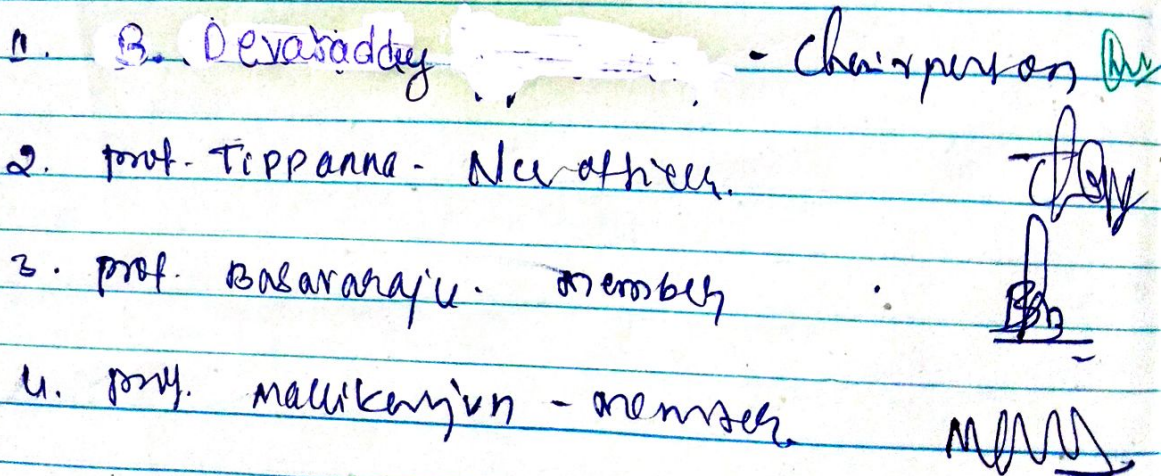 1. B. Devaraddy - Chairperson
2. prof. Tippanna - officer.
3. prof. Basavaraju. member
4. prof. Mallikarjun - member.